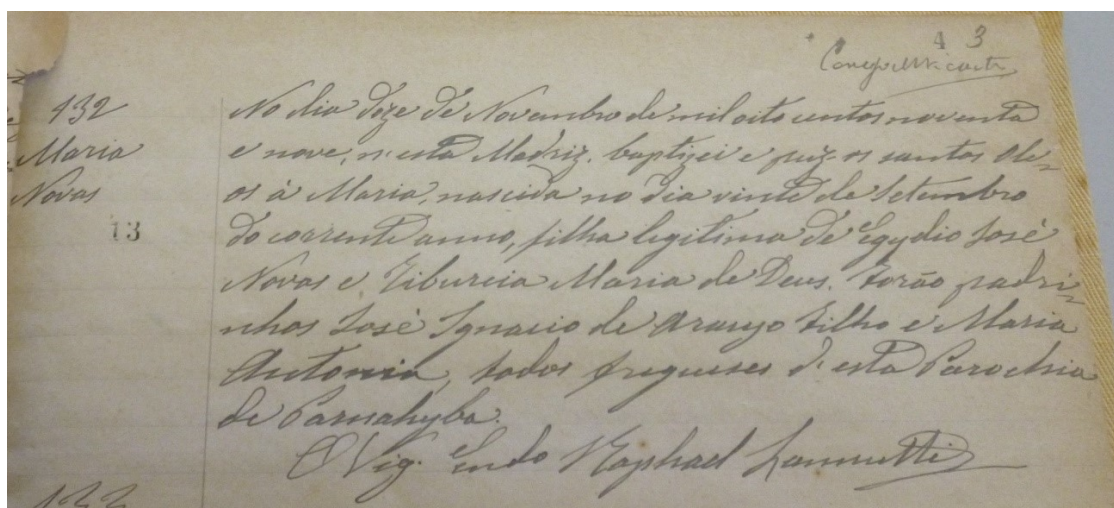 4 3
132
Maria
Novas
13
No dia doze de Novembro de mil oito centos noventa
e nove, n'esta Madriz, baptizei e puz os santos Ole-
os à Maria, nascida no dia vinte de Setembro
do corrente anno, filha legitima de Egydio José
Novas e Tiburcia Maria de Deus. Forão padri-
nhos José Ignacio de Araujo Filho e Maria
Antonia, todos fregueses d'esta Parochia
de Parnahyba.
O Vig. Raphael
133